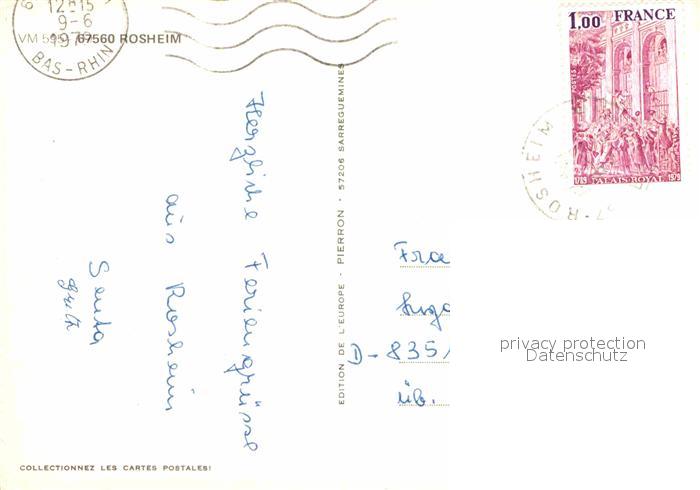 12H15
9-6
197
BAS-RHIN
VM 67560 ROSHEIM
Herzliche Feriengrüsse
aus Rosheim
Senta
EDITION DE L'EUROPE - PIERRON - 57206 SARREGUEMINES
1,00 FRANCE
PALAIS-ROYAL 1979
67-ROSHEIM
D-835
üb.
privacy protection
Datenschutz
COLLECTIONNEZ LES CARTES POSTALES!